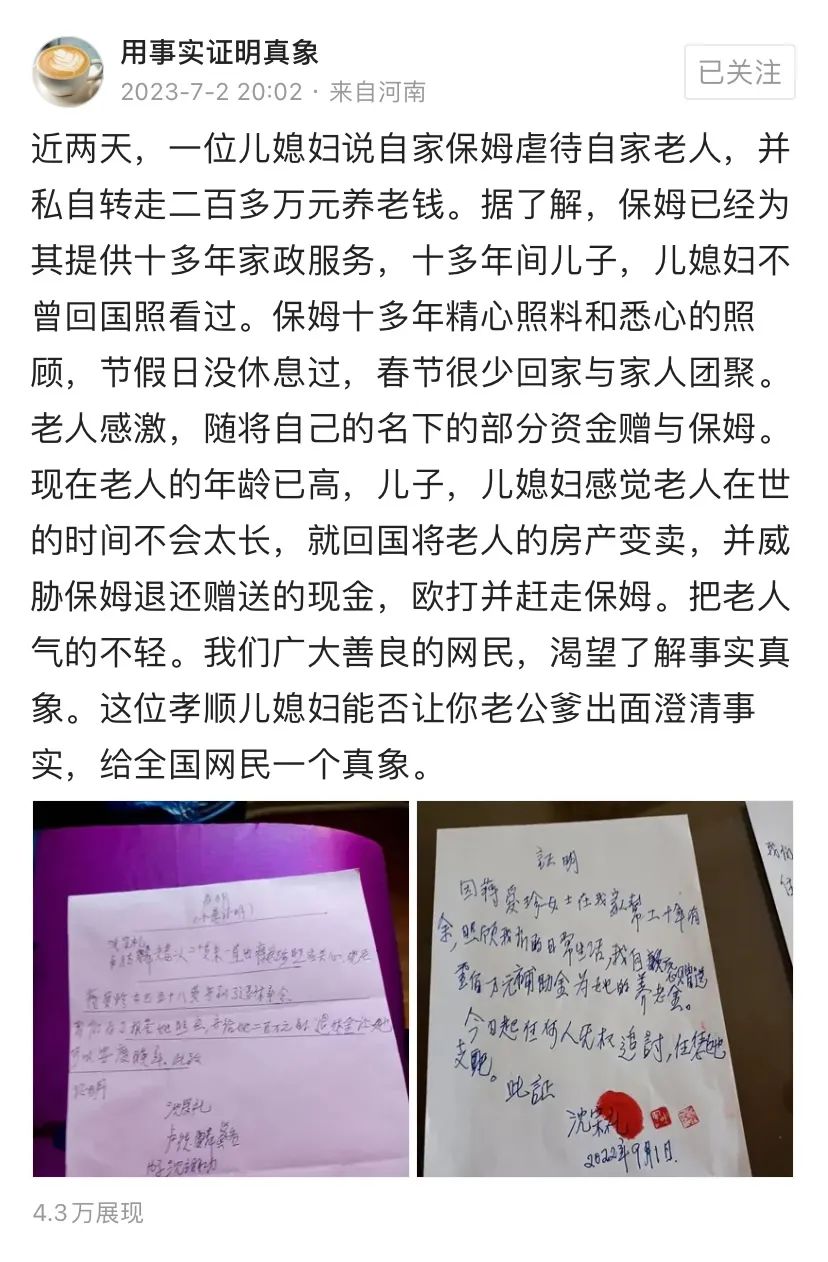 用事实证明真象
2023-7-2 20:02 · 来自河南
已关注
近两天，一位儿媳妇说自家保姆虐待自家老人，并
私自转走二百多万元养老钱。据了解，保姆已经为
其提供十多年家政服务，十多年间儿子，儿媳妇不
曾回国照看过。保姆十多年精心照料和悉心的照
顾，节假日没休息过，春节很少回家与家人团聚。
老人感激，随将自己的名下的部分资金赠与保姆。
现在老人的年龄已高，儿子，儿媳妇感觉老人在世
的时间不会太长，就回国将老人的房产变卖，并威
胁保姆退还赠送的现金，欧打并赶走保姆。把老人
气的不轻。我们广大善良的网民，渴望了解事实真
象。这位孝顺儿媳妇能否让你老公爹出面澄清事
实，给全国网民一个真象。
此致
证明
沈宗礼
証明
因蒋爱珍女士在我家帮工十年有
余，照顾我们的日常生活，我自愿赠送
壹佰万元辅助金为她的养老金。
今日起任何人无权追討，任凭她
支配。
此証
沈宗礼
2022年9月1日.
我们
4.3万展现